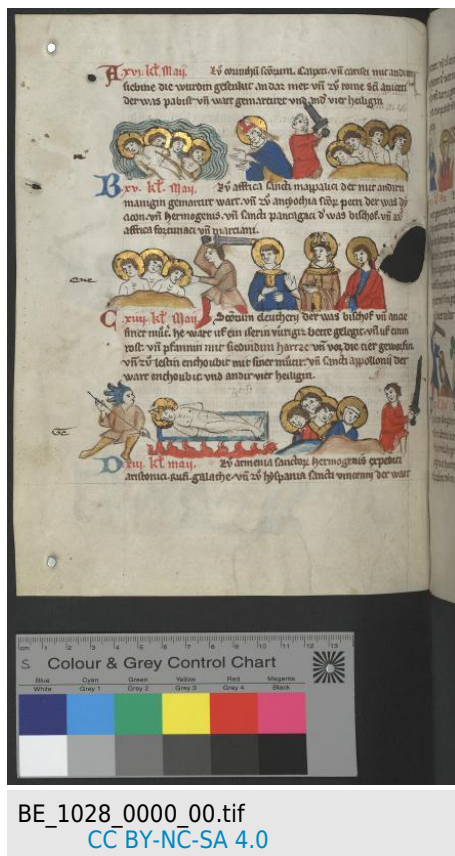 A xvi. kl. Maij. Zv corinthū scōrum. Calixti. vn̄ carisi mit andirn
siebene die wurdin gesenkit an daz mer. vn̄ zv rome sc̄i aniceti
der was pabist vn̄ wart gemartirt vnd andir vier heiligin
B xv. kl. Maij. Zv affrica sancti mappalici der mit andirn
manigin gemartirt wart. vn̄ zv anthochia scōrum petri der was dy
acon. vn̄ hermogenis. vn̄ sancti pantagati d' was bischof. vn̄ zv
affrica fortunati vn̄ marciani.
C xiiij. kl. Maij. Scōrum eleutherij der was bischof vn̄ anthie
siner mutir. he wart uf ein iserin bette gelegit. vn̄ uf einin
rost. vn̄ pfannin mit siedindim hartze vn̄ vor die tier geworfin
vn̄ zv lestin enthoubit mit siner mutir. vn̄ sancti appollonij der
wart enthoubit. vnd andir vier heiligin.
D xiij. kl. maij. Zv armenia sanctorum hermogenis expediti
aristonici. Rufi. galathe. vn̄ zv hyspania sancti vincentij der wart
cm 1 2 3 4 5 6 7 8 9 10 11 12 13
S Colour & Grey Control Chart
Blue Cyan Green Yellow Red Magenta
White Grey 1 Grey 2 Grey 3 Grey 4 Black
BE_1028_0000_00.tif
CC BY-NC-SA 4.0